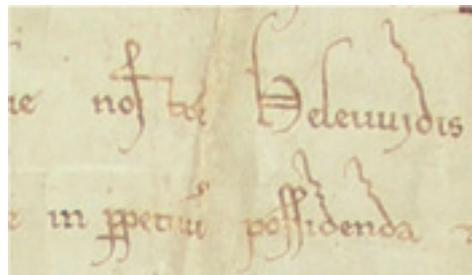 noſtre Heleuuidis
in ꝑpetuū poſſidenda